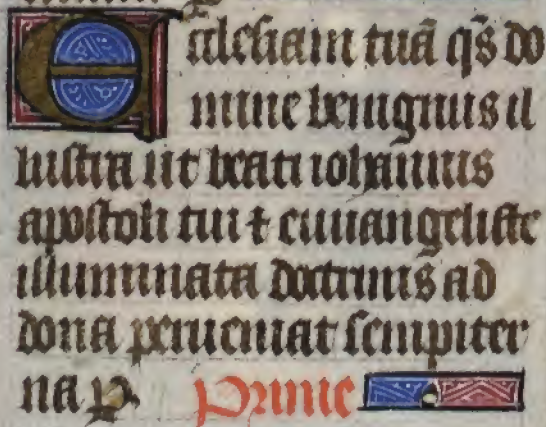 Ecclesiam tuā q̄s do
mine benignus il
lustra ut beati iohannis
apostoli tui ⁊ euuangeliste
illuminata doctrinis ad
dona perueniat sempiter
na p̱ Prime